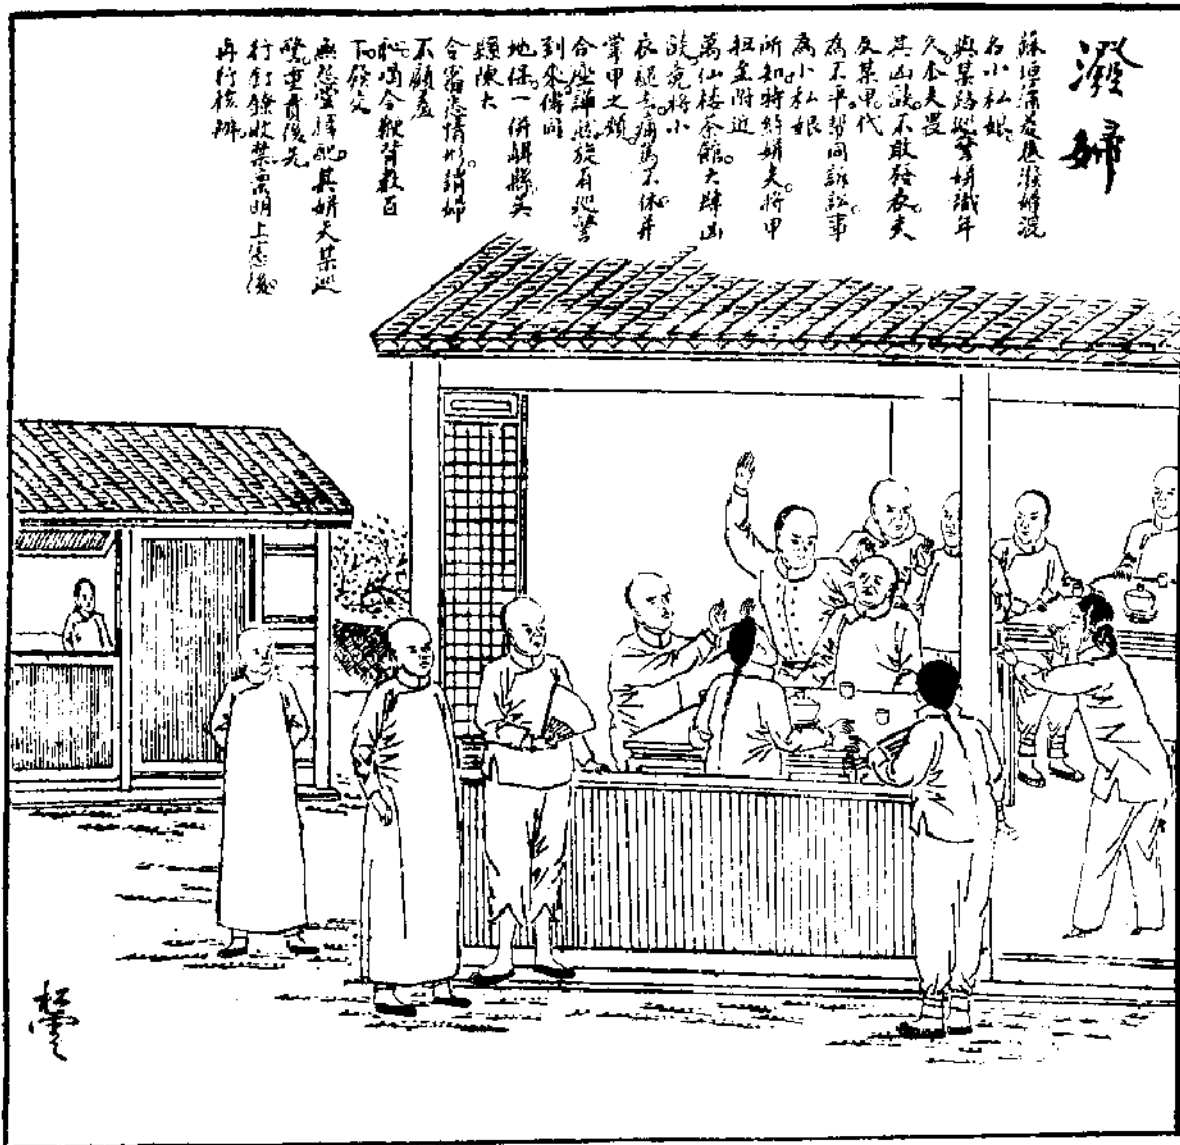 潑婦
蘇垣滿茂悍潑婦混
名小私娘
與某路巡警姘識年
久本夫畏
其凶燄不敢發衣夫
友某甲代
為不平幫同訴訟事
為小私娘
所知特糾姘夫將甲
扭至附近
萬仙樓茶館大肆凶
燄竟將小
衣褪去痛罵不休并
掌甲之頰
合座譁然旋有巡警
到來傳同
地保一併解縣吳
縣陳大
令審悉情形謂婦
不顧廉
恥喝令鞭背數百
下發交
無怨堂擇配其姘夫某巡
警重責後先
行釘鐐收禁禀明上憲後
再行核辦
松雲